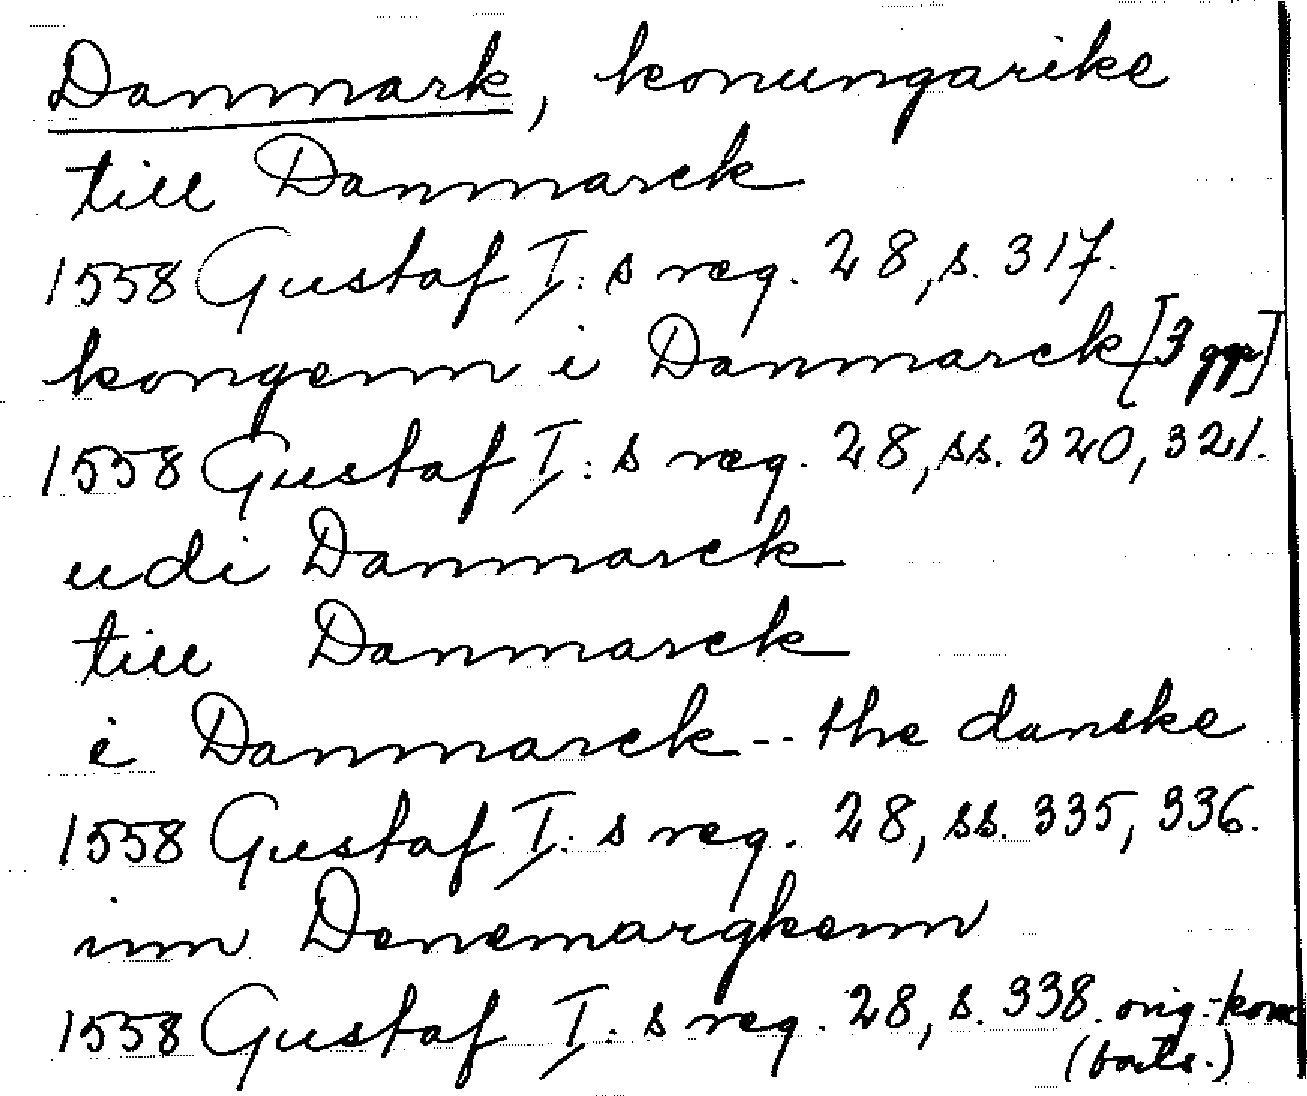 Danmark, konungarike
till Danmarck
1558 Gustaf I:s reg. 28, s. 317.
kongenn i Danmarck [3 ggr]
1558 Gustaf I:s reg. 28, ss. 320, 321.
udi Danmarck
till Danmarck
i Danmarck -- the danske
1558 Gustaf I:s reg. 28, ss. 335, 336.
inn Denemargkenn
1558 Gustaf I:s reg. 28, s. 338. orig.-konc
(forts.)